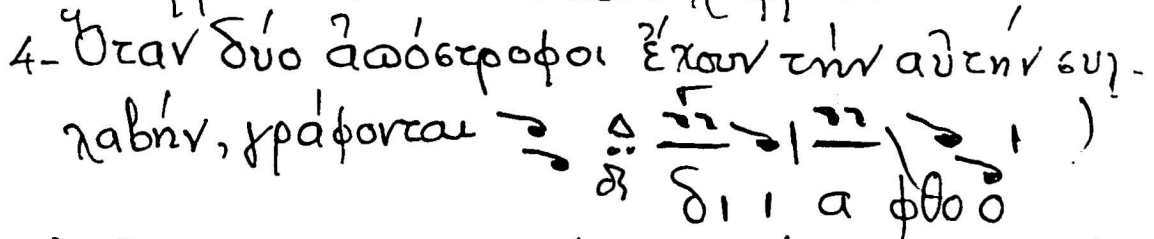 4- Ὅταν δύο ἀπόστροφοι ἔχουν τήν αὐτήν συλ-
λαβήν, γράφονται
δι ι α φθο ο